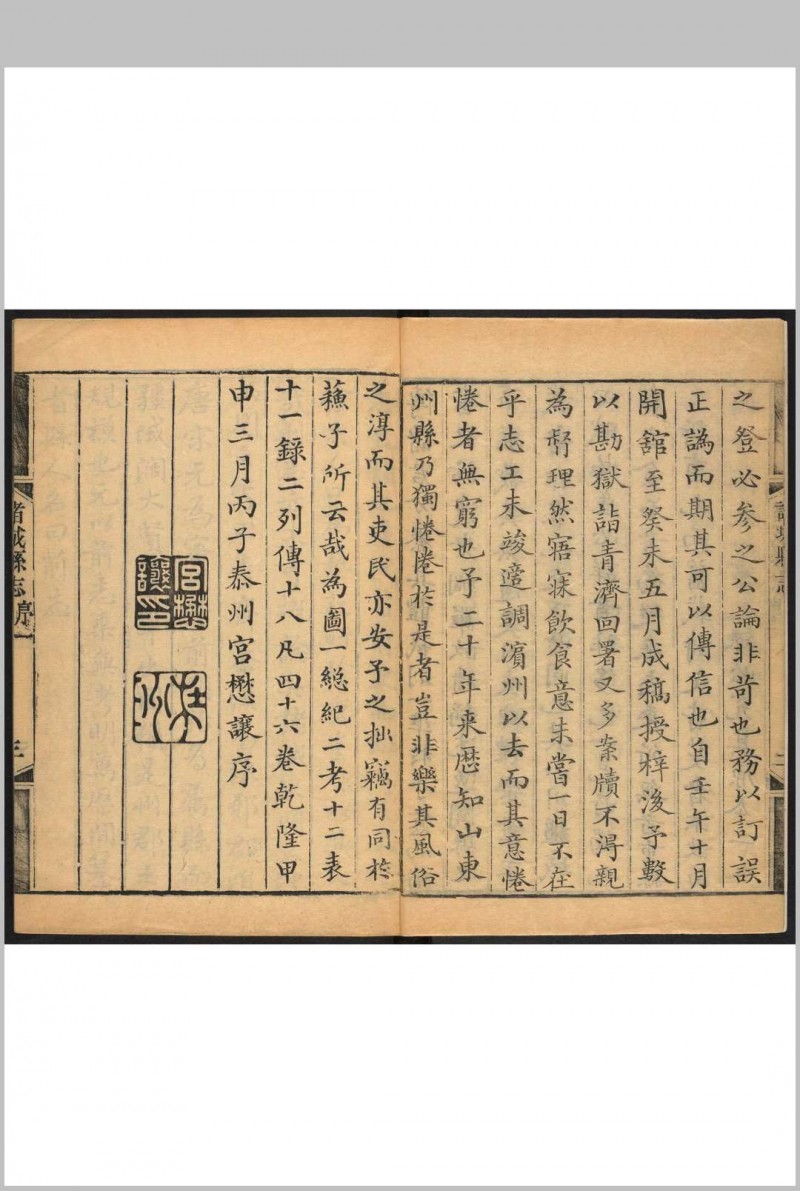 之登必參之公論非苛也務以訂誤
正譌而期其可以傳信也自壬午十月
開舘至癸未五月成稿授梓後予數
以勘獄詣青濟回署又多案牘不淂親
為督理然寤寐飲食意未嘗一日不在
乎志工未竣遷調濵州以去而其意惓
惓者無窮也予二十年來歷知山東
州縣乃獨惓惓於是者豈非樂其風俗
之淳而其吏民亦安予之拙竊有同於
蘓子所云哉為圖一緫紀二考十二表
十一錄二列傳十八凡四十六卷乾隆甲
申三月丙子泰州宮懋讓序
宮懋讓印
諸城縣志
諸城縣志 序一
三